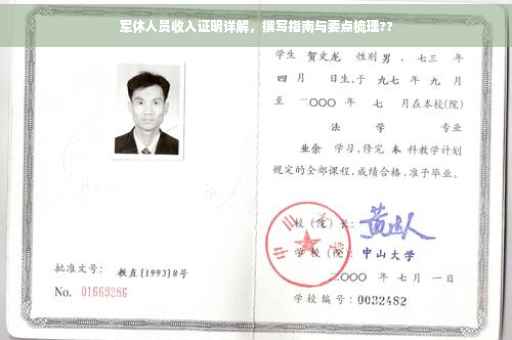 军休人员收入证明详解，撰写指南与要点梳理??
学生 贺文龙 性别 男，七三 年
四 月 日生，于 九七 年 九 月
至 二〇〇〇 年 七 月在本校(院)
法 学 专业
业余 学习，修完 本 科教学计划
规定的全部课程，成绩合格，准予毕业。
校（院）长：
学校（院）：中山大学
二〇〇〇 年 七 月 一 日
学校编号：0032482
批准文号：教直[1993]8号
No. 01669286